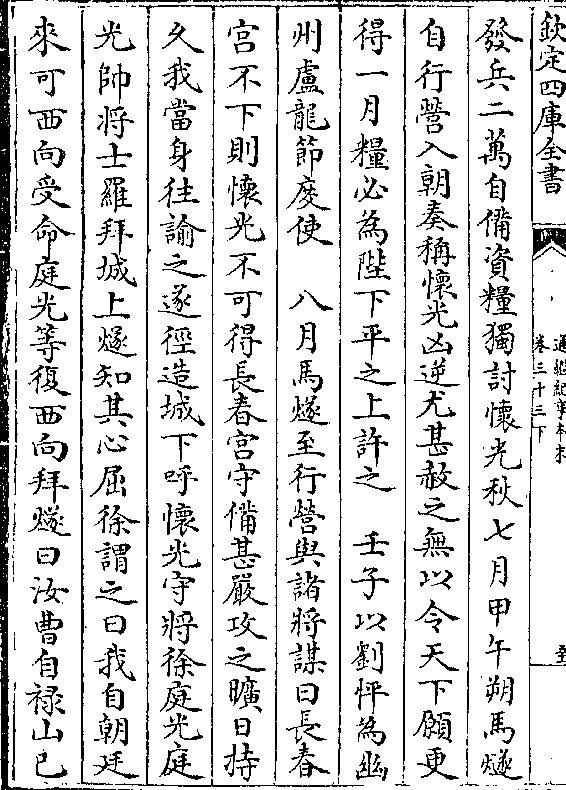 欽定四庫全書
通鑑紀事本末
卷三十三下
發兵二萬自備資糧獨討懷光秋七月甲午朔馬燧
自行營入朝奏稱懷光凶逆尤甚赦之無以令天下願更
得一月糧必為陛下平之上許之　壬子以劉怦為幽
州盧龍節度使　八月馬燧至行營與諸將謀曰長春
宮不下則懷光不可得長春宮守備甚嚴攻之曠日持
久我當身往諭之遂徑造城下呼懷光守將徐庭光庭
光帥將士羅拜城上燧知其心屈徐謂之曰我自朝廷
來可西向受命庭光等復西向拜燧曰汝曹自祿山已